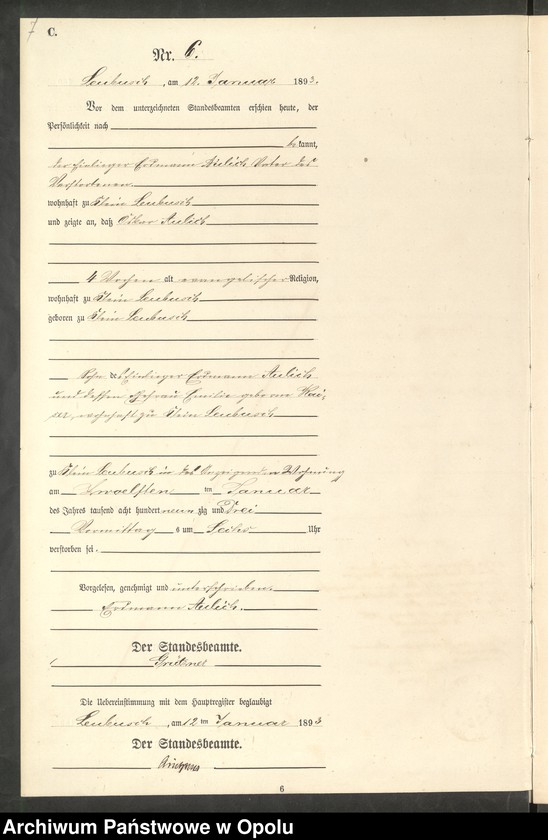 7
C.
Nr. 6.
Leubusch, am 12. Januar 1893.
Vor dem unterzeichneten Standesbeamten erschien heute, der
Persönlichkeit nach
bekannt,
der Einlieger Erdmann Aulich Vater des
Verstorbenen
wohnhaft zu Klein Leubusch
und zeigte an, daß Oskar Aulich
4 Wochen alt evangelischer Religion,
wohnhaft zu Klein Leubusch
geboren zu Klein Leubusch
Sohn des Einlieger Erdmann Aulich
und dessen Ehefrau Emilie geborene Kai-
ser, wohnhaft zu Klein Leubusch
zu Klein Leubusch in des Anzeigenden Wohnung
am Zwoelften ten Januar
des Jahres tausend acht hundert neunzig und Drei
Vormittags um Sechs Uhr
verstorben sei.
Vorgelesen, genehmigt und unterschrieben.
Erdmann Aulich.
Der Standesbeamte.
Die Uebereinstimmung mit dem Hauptregister beglaubigt
Leubusch, am 12 ten Januar 1893
Der Standesbeamte.
6
Archiwum Państwowe w Opolu